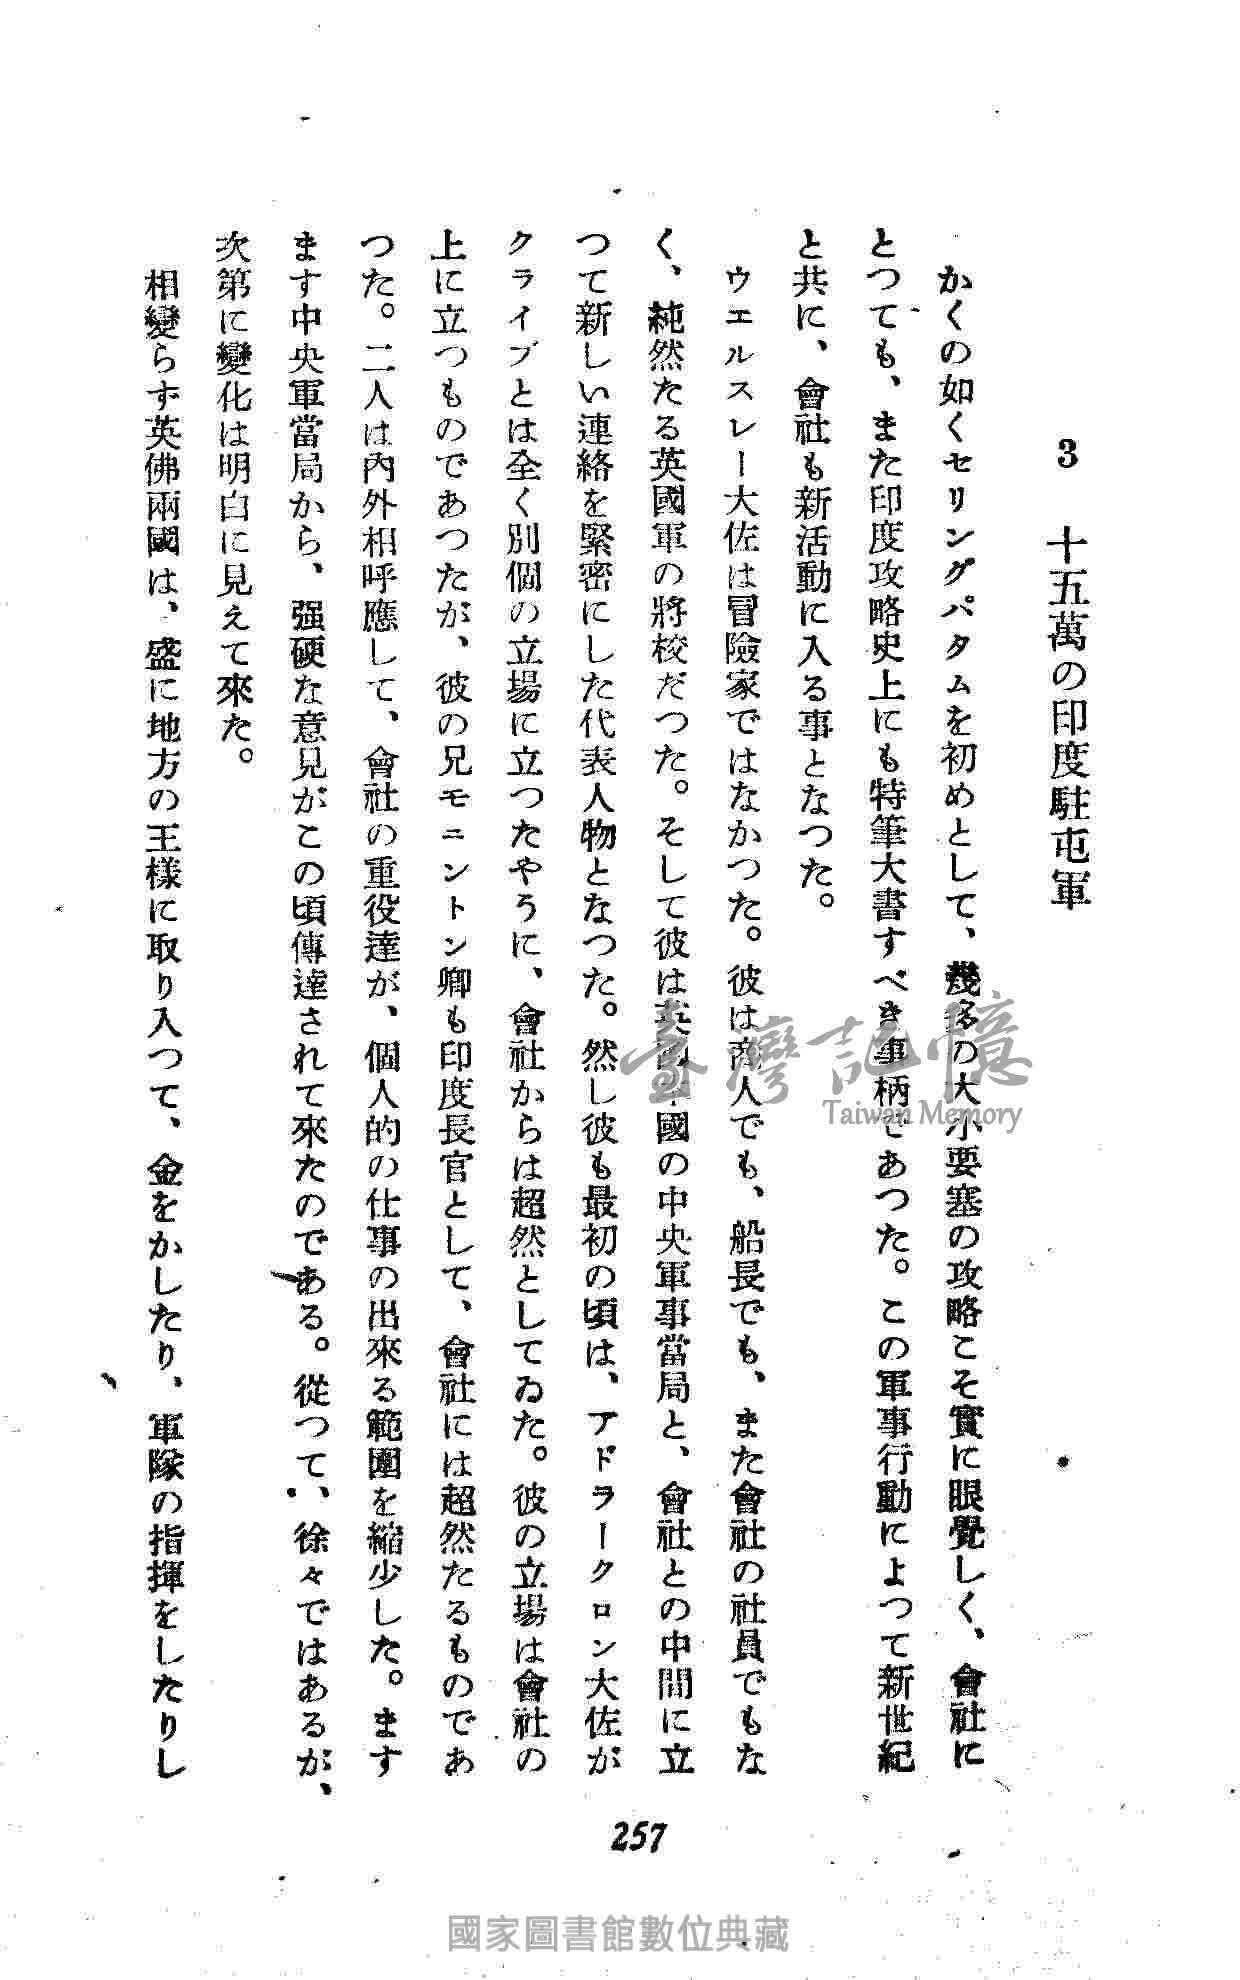 3 十五萬の印度駐屯軍
かくの如くセリングパタムを初めとして、幾多の大小要塞の攻略こそ實に眼覺しく、會社に
とつても、また印度攻略史上にも特筆大書すべき事柄であつた。この軍事行動によつて新世紀
と共に、會社も新活動に入る事となつた。
ウエルスレー大佐は冒險家ではなかつた。彼は商人でも、船長でも、また會社の社員でもな
く、純然たる英國軍の將校だつた。そして彼は英國の中央軍事當局と、會社との中間に立
つて新しい連絡を緊密にした代表人物となつた。然し彼も最初の頃は、アドラークロン大佐が
クライブとは全く別個の立場に立つたやうに、會社からは超然としてゐた。彼の立場は會社の
上に立つものであつたが、彼の兄モニントン卿も印度長官として、會社には超然たるものであ
つた。二人は內外相呼應して、會社の重役達が、個人的の仕事の出來る範圍を縮少した。ます
ます中央軍當局から、强硬な意見がこの頃傳達されて來たのである。從つて、徐々ではあるが、
次第に變化は明白に見えて來た。
相變らず英佛兩國は、盛に地方の王樣に取り入つて、金をかしたり、軍隊の指揮をしたりし
257
臺灣記憶
Taiwan Memory
國家圖書館數位典藏